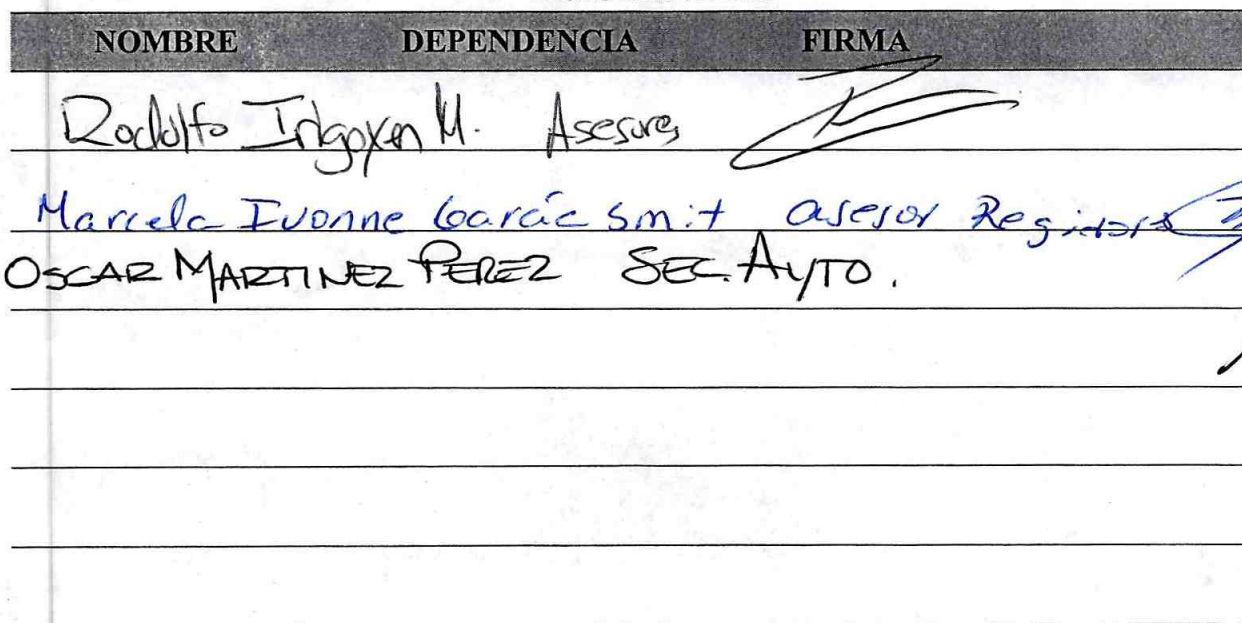 NOMBRE DEPENDENCIA FIRMA
Rodolfo Irigoyen M. Asesores
Marcela Ivonne García Smit asesor Regidora
OSCAR MARTINEZ PEREZ SEC. AYTO.